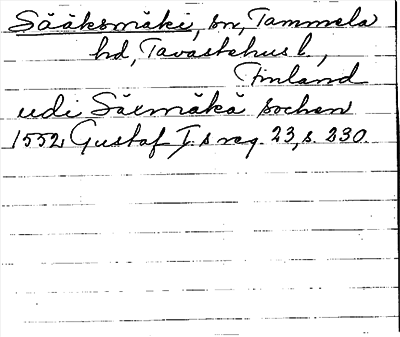 Sääksmäki, sn, Tammela
hd, Tavastehus l.,
Finland
udi Säxmäkä sochen
1552 Gustaf I:s reg. 23, s. 230.